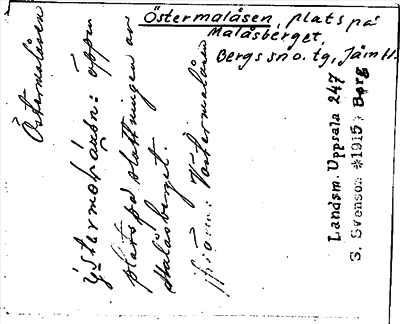 Östermalåsen, plats på
Malåsberget,
Bergs sn o. tg, Jämtl.
Östermalåsen
öppen
plats på sluttningen av
Malåsberget.
Västermalåsen
Landsm. Uppsala 247
S. Svenson *1915; Berg